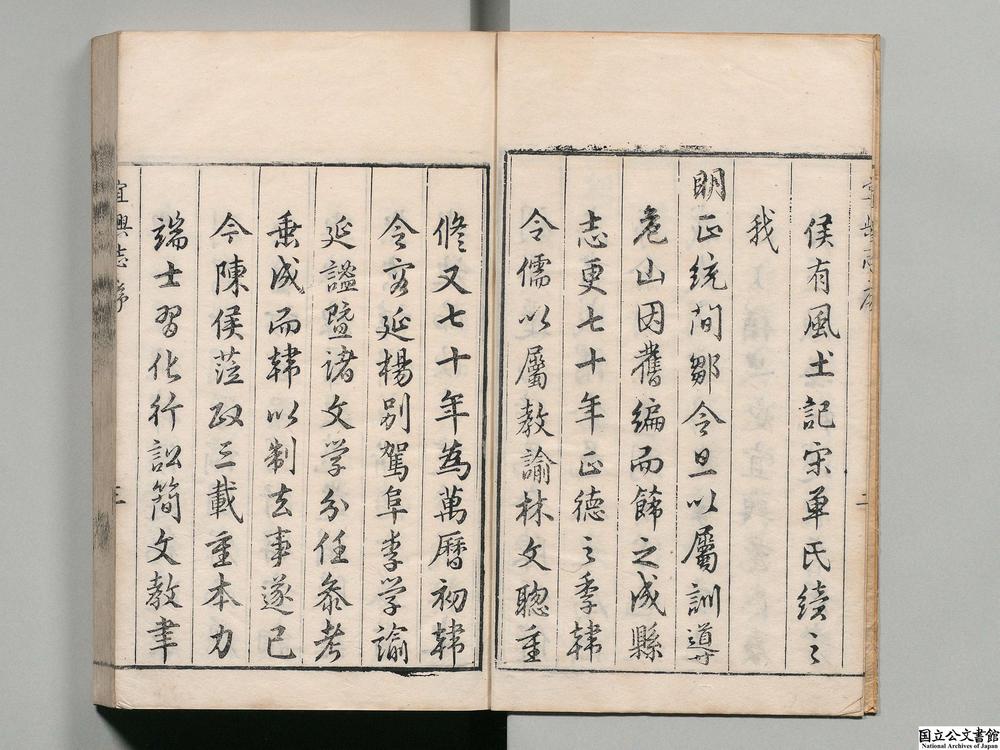 侯有風土記宋單氏續之
我
明正統間鄒令旦以屬訓導
危山因舊編而飾之成縣
志更七十年正德之季韓
令儒以屬教諭林文聰重
修又七十年為萬曆初韓
令容延楊別駕阜李學諭
延諡暨諸文學分任參考
垂成而韓以制去事遂已
今陳侯蒞政三載重本力
端士習化行訟簡文教聿
宜興志序
三
国立公文書館
National Archives of Japan